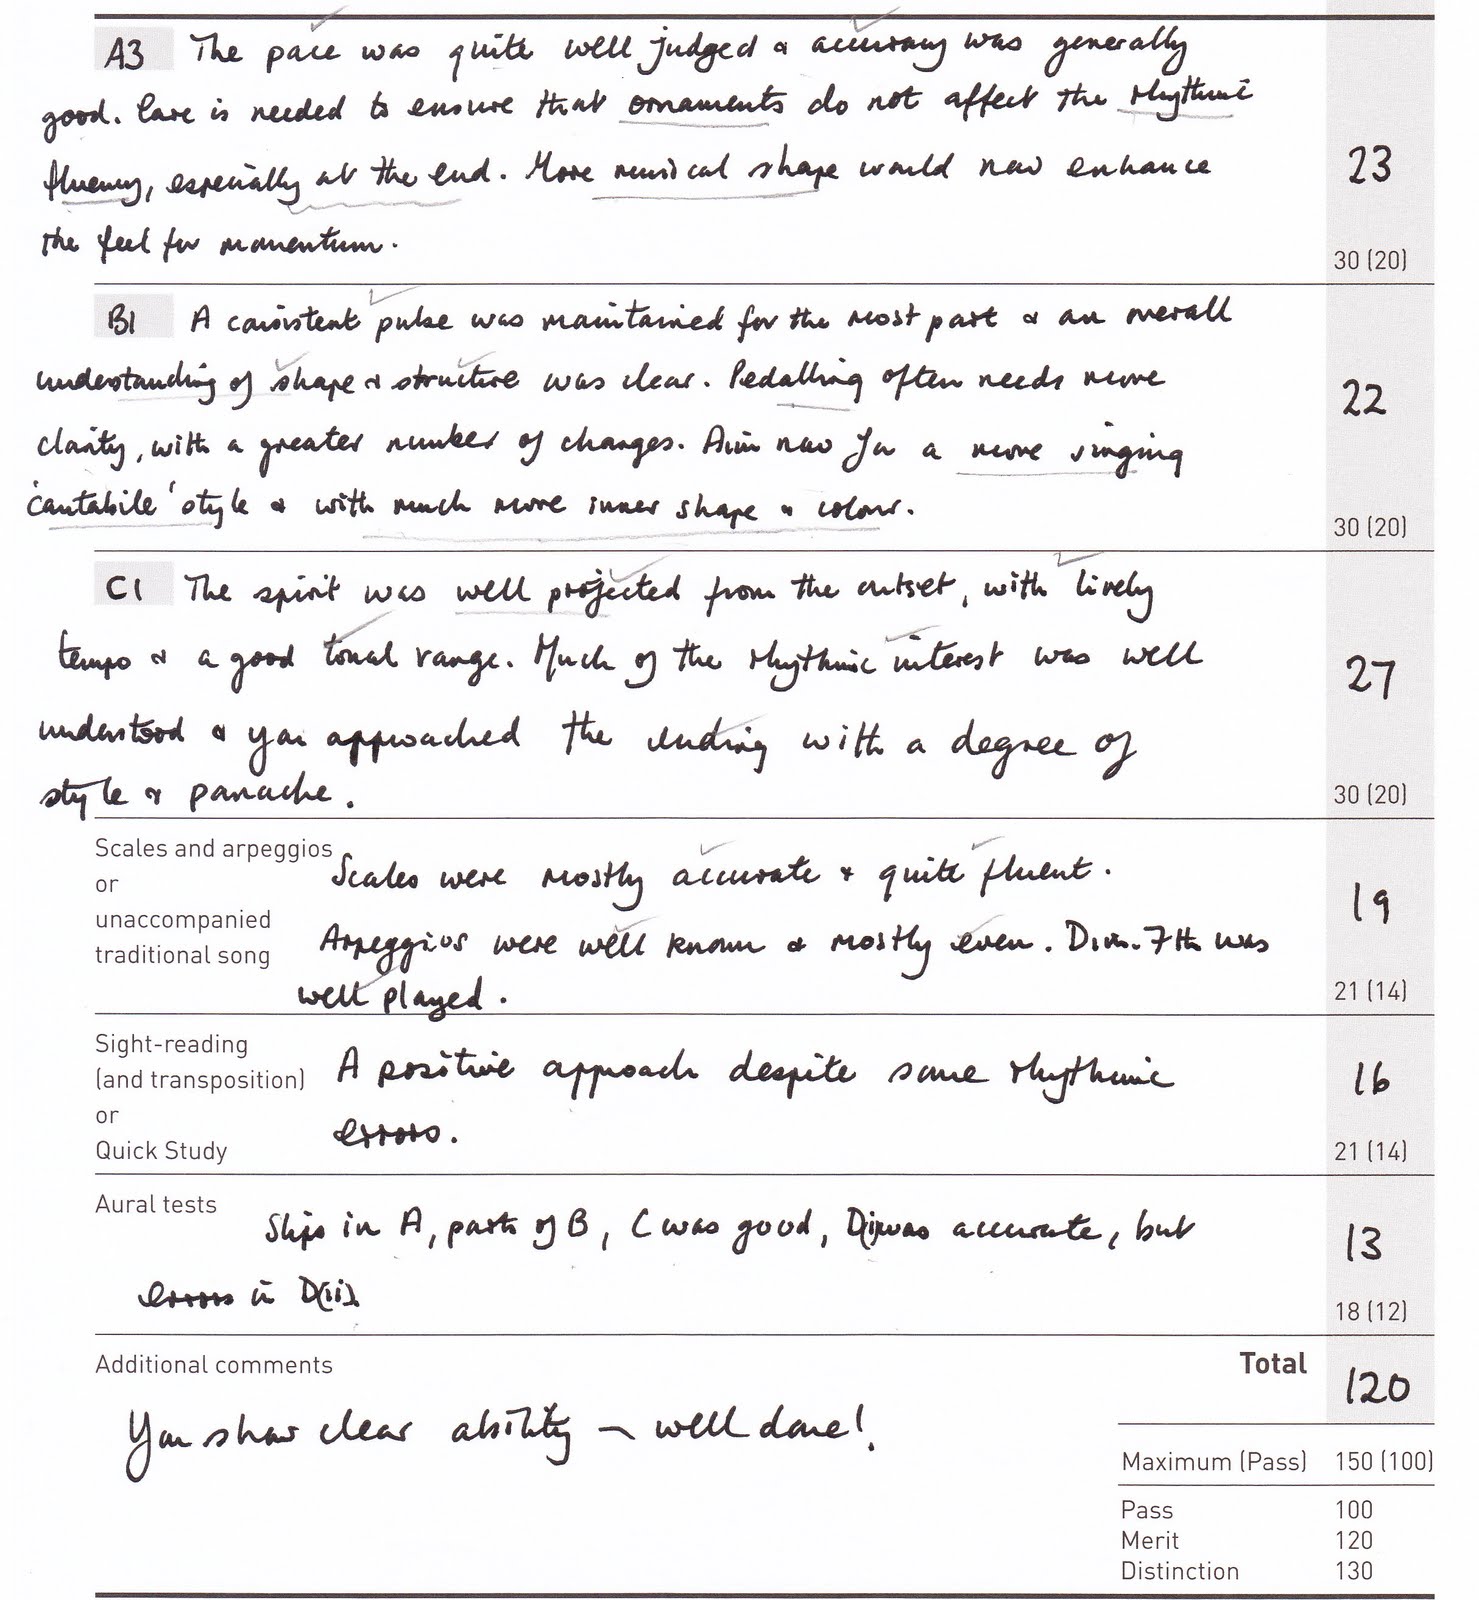 A3 The pace was quite well judged & accuracy was generally
good. Care is needed to ensure that ornaments do not affect the rhythmic
fluency, especially at the end. More musical shape would now enhance
the feel for momentum.
23
30 (20)
B1 A consistent pulse was maintained for the most part & an overall
understanding of shape & structure was clear. Pedalling often needs more
clarity, with a greater number of changes. Aim now for a more singing
'cantabile' style & with much more inner shape & colour.
22
30 (20)
C1 The spirit was well projected from the outset, with lively
tempo & a good tonal range. Much of the rhythmic interest was well
understood & you approached the ending with a degree of
style & panache.
27
30 (20)
Scales and arpeggios
or
unaccompanied
traditional song
Scales were mostly accurate & quite fluent.
Arpeggios were well known & mostly even. Dim. 7th was
well played.
19
21 (14)
Sight-reading
(and transposition)
or
Quick Study
A positive approach despite some rhythmic
errors.
16
21 (14)
Aural tests
Slips in A, parts of B, C was good, D(i) was accurate, but
errors in D(ii).
13
18 (12)
Additional comments
You show clear ability – well done!
Total 120
Maximum (Pass) 150 (100)
Pass 100
Merit 120
Distinction 130